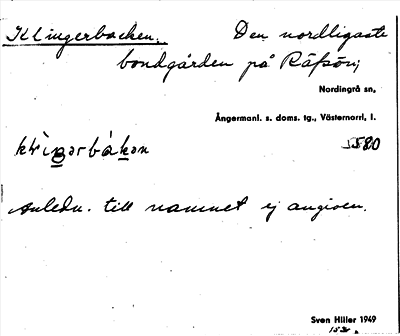 Klingerbacken. Den nordligaste
bondgården på Råfsön;
Nordingrå sn,
Ångermanl. s. doms. tg., Västernorrl. l.
580
Anledn. till namnet ej angiven.
Sven Hiller 1949